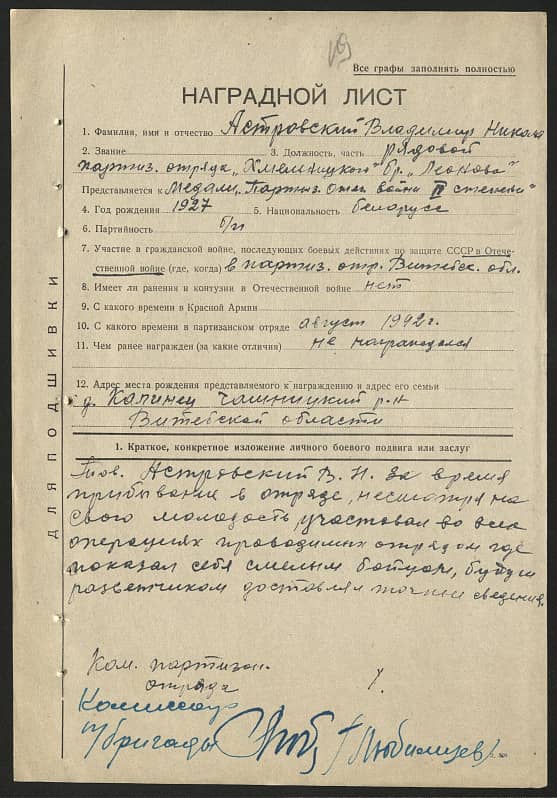 Все графы заполнять полностью
НАГРАДНОЙ ЛИСТ
1. Фамилия, имя и отчество Астровский Владимир Никола
2. Звание 3. Должность, часть рядовой
партиз. отряда „Хмельницкого" бр. „Леонова"
Представляется к медали „Партиз. Отеч войны II степени"
4. Год рождения 1927 5. Национальность беларусс
6. Партийность б/п
7. Участие в гражданской войне, последующих боевых действиях по защите СССР в Отече-
ственной войне (где, когда) в партиз. отр. Витебск. обл.
8. Имеет ли ранения и контузии в Отечественной войне нет
9. С какого времени в Красной Армии
10. С какого времени в партизанском отряде август 1942 г.
11. Чем ранее награжден (за какие отличия) не награждался
12. Адрес места рождения представляемого к награждению и адрес его семьи
д. Калинец Чашницкий р-н
Витебской области
ДЛЯ ПОДШИВКИ
1. Краткое, конкретное изложение личного боевого подвига или заслуг
Тов. Астровский В. Н. за время
прибывание в отряде, несмотря на
свою молодость участовал во всех
операциях проводимых отрядом где
показал себя смелым бойцом, будучи
разветчиком доставлял точные сведения.
Ком. партизан.
отряда
Комиссар
п/бригады Любимцев